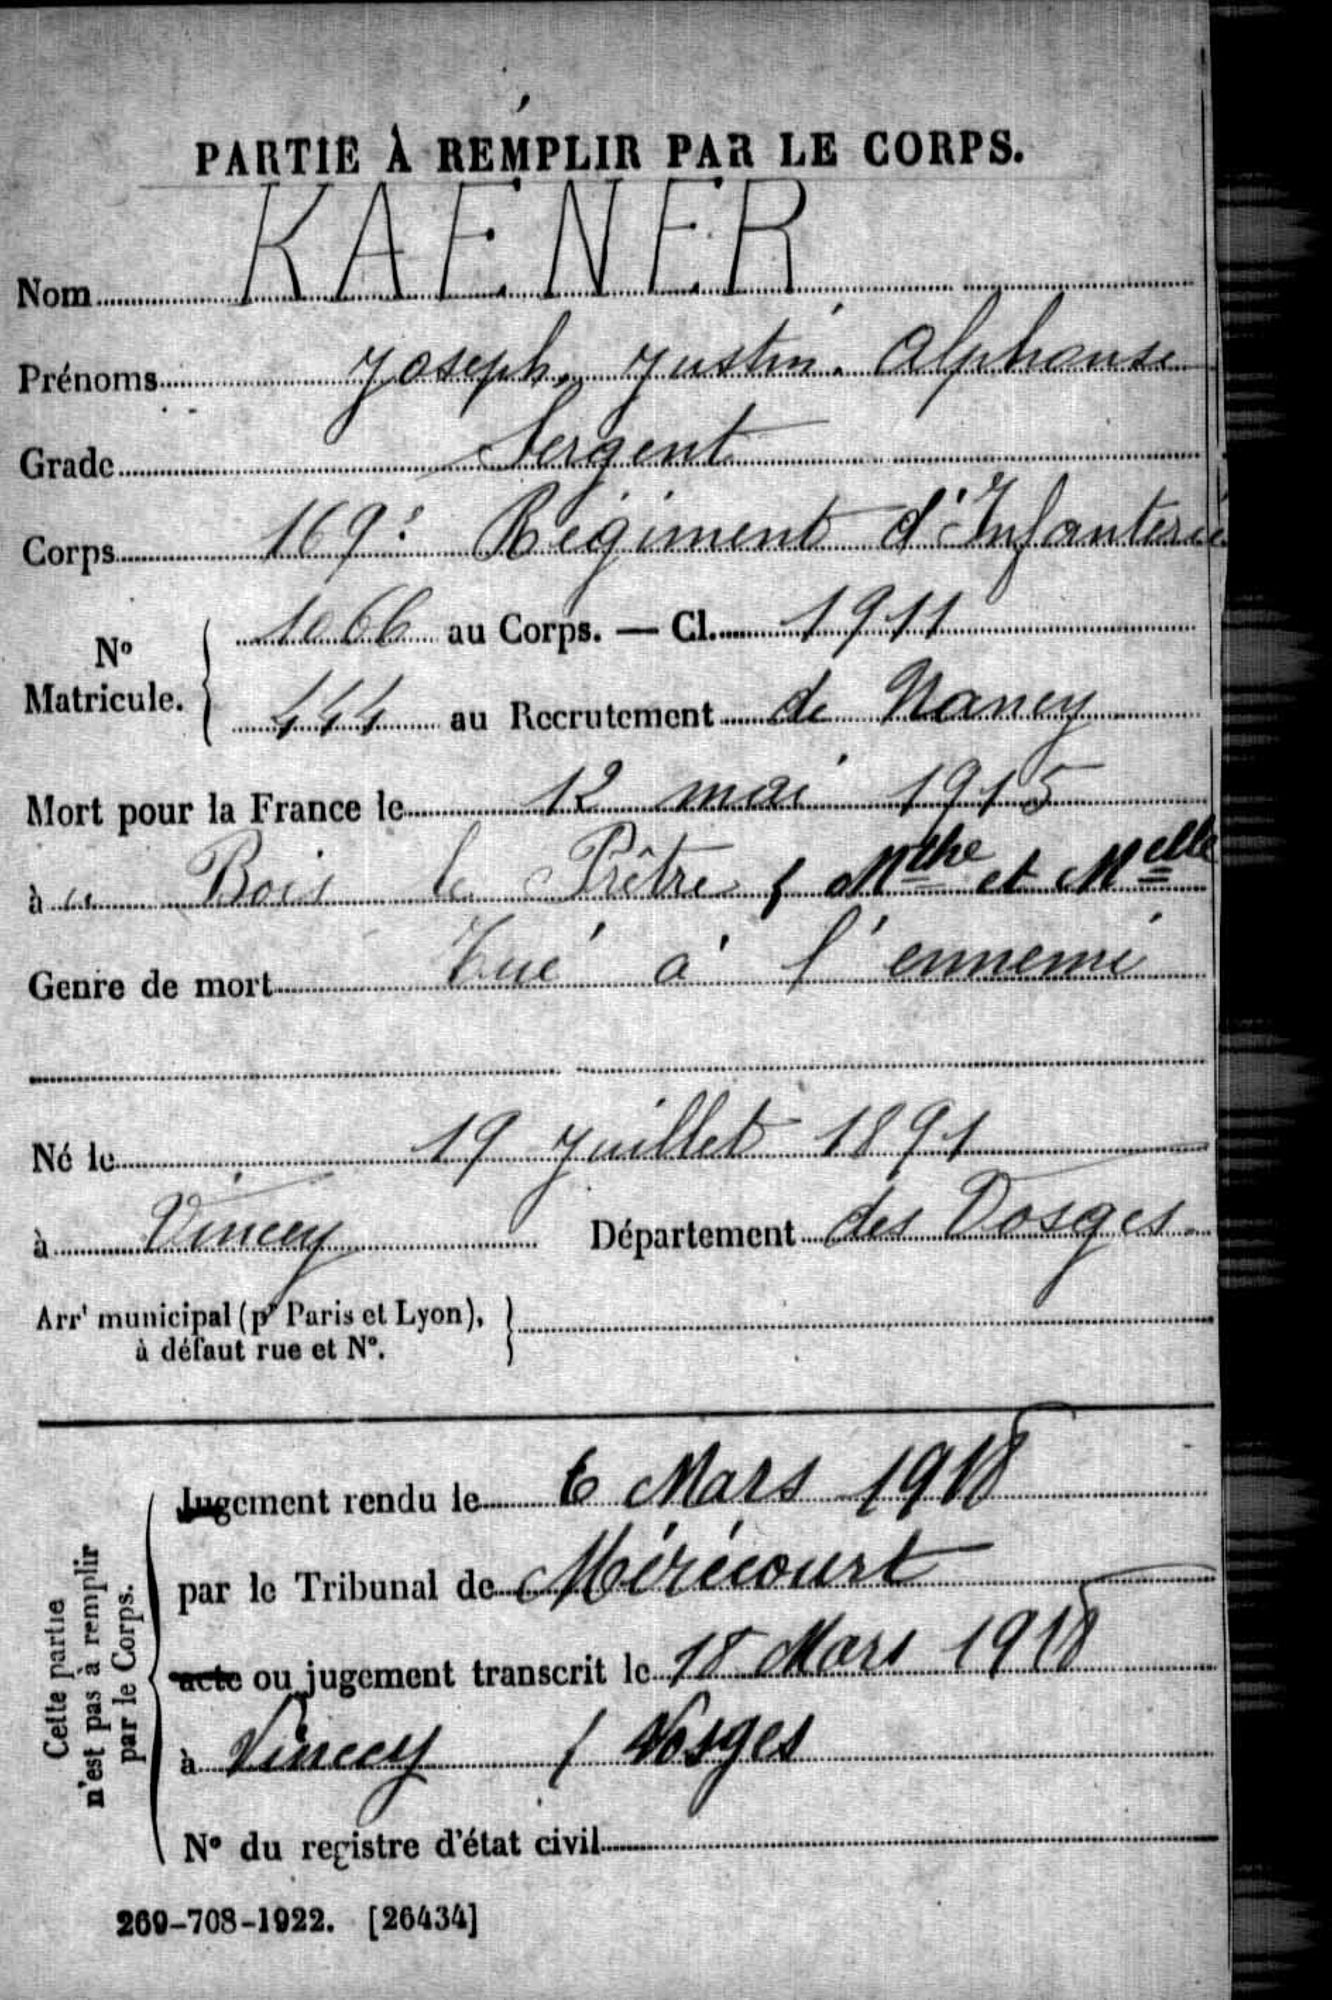 PARTIE À REMPLIR PAR LE CORPS.
Nom KAENER
Prénoms Joseph, Justin. Alphonse
Grade Sergent
Corps 169e Régiment d'Infanterie
No Matricule. 1066 au Corps. — Cl. 1911
444 au Recrutement de Nancy
Mort pour la France le 12 mai 1915
à u Bois le Prêtre ( Mthe et Melle
Genre de mort Tué à l'ennemi
Né le 19 Juillet 1891
à Vincey Département des Vosges.
Arrt municipal (pr Paris et Lyon),
à défaut rue et No.
Cette partie
n'est pas à remplir
par le Corps.
Jugement rendu le 6 Mars 1918
par le Tribunal de Mirecourt
acte ou jugement transcrit le 18 Mars 1918
à Vincey ( Vosges
No du registre d'état civil
269-708-1922. [26434]